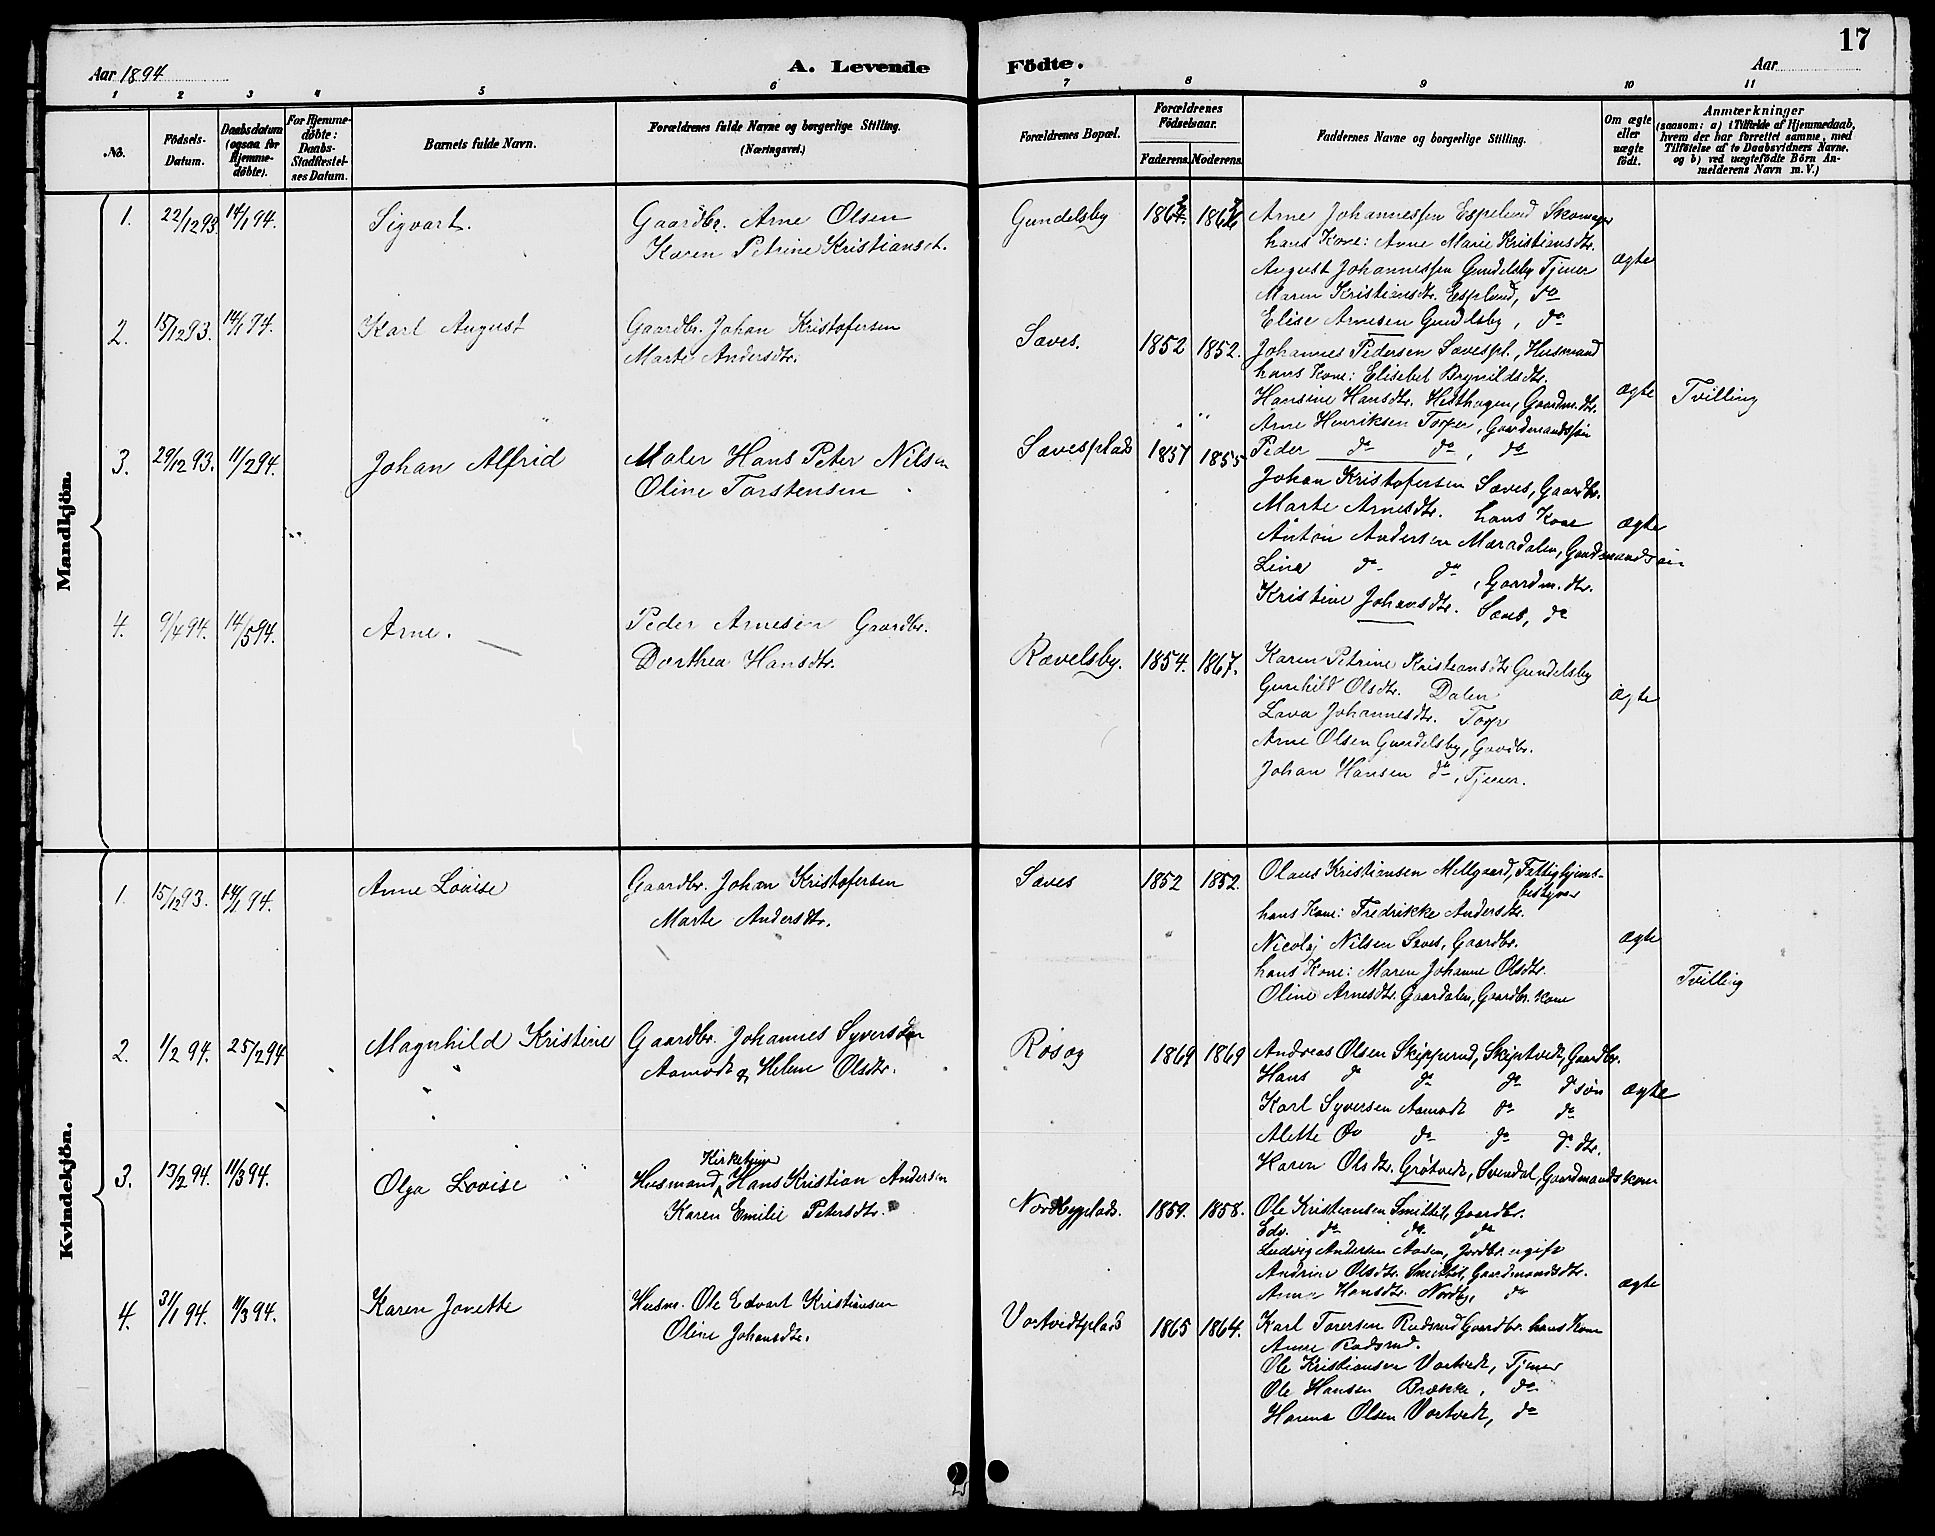 17
Aar 1894
A. Levende Födte.
Aar
1 2 3 4 5 6 7 8 9 10 11
No.
Födsels-
Datum.
Daabsdatum
(ogsaa for
Hjemme-
døbte).
For Hjemme-
døbte:
Daabs-
Stadfæstel-
ses Datum.
Barnets fulde Navn.
Forældrenes fulde Navne og borgerlige Stilling.
(Næringsvei.)
Forældrenes Bopæl.
Forældrenes
Fødselsaar.
Faderens. Moderens.
Faddernes Navne og borgerlige Stilling.
Om ægte
eller
uægte
født.
Anmærkninger
(saasom: a) i Tilfælde af Hjemmedaab,
hvem der har forrettet samme, med
Tilføielse af to Daabsvidners Navne.
og b) ved uægtefødte Børn An-
melderens Navn m. V.)
Mandkjön.
1. 22/12 93 14/1 94. Sigvart.
Gaardbr. Arne Olsen
Karen Petrine Kristiansdt.
Gundelsby
Arne Johannessen Espelund Skomager
hans Kone: Anne Marie Kristiansdtr.
August Johannessen Gundelsby Tjener
Maren Kristiansdtr. Esplund, do
Elise Arnesen Gundelsby, do
ægte
2. 15/12 93. 14/1 94. Karl August
Gaardbr. Johan Kristofersen
Marte Andersdtr.
Sæves. 1852 1852.
Johannes Pedersen Sævespl., Husmand
hans Kone: Elisebet Brynildsdtr.
Hansine Hansdtr. Hesthagen, Gaardm.dtr.
Arne Henriksen Torper, Gaardmandssøn
Peder do do, do
ægte
Tvilling
3. 29/12 93. 11/2 94. Johan Alfrid
Maler Hans Peter Nilsen
Oline Torstensen
Sævesplads 1857 1855
Johan Kristofersen Sæves, Gaardbr.
Marte Arnesdtr. hans Kone
Anton Andersen Mæradalen, Gaardmandssøn
Lina do do, Gaardm.dtr.
Kristine Johansdtr. Sæves, do
ægte
4. 9/4 94. 14/5 94. Arne.
Peder Arnesen Gaardbr.
Dorthea Hansdtr.
Rævelsby. 1854. 1867.
Karen Petrine Kristiansdtr Gundelsby
Gunhild Olsdtr. Dalen
Lava Johannesdtr. Torp
Arne Olsen Gundelsby, Gaardbr.
Johan Hansen do, Tjener.
ægte
Kvindekjön.
1. 15/12 93. 14/1 94. Anne Lovise
Gaardbr. Johan Kristofersen
Marte Andersdtr.
Sæves 1852 1852.
Olaus Kristiansen Mellgaard, Fattighjems-
bestyrer
hans Kone: Fredrikke Andersdtr.
Nicolaj Nilsen Sæves, Gaardbr.
hans Kone: Maren Johanne Olsdtr.
Oline Arnesdtr. Gaardalen, Gaardbr. Kone
ægte
Tvilling
2. 1/2 94. 25/2 94 Magnhild Kristine
Gaardbr. Johannes Syversen
Aamodt & Helene Olsdtr.
Røsæg 1869 1869
Andreas Olsen Skipperud, Skiptvedt, Gaardbr.
Hans do do do do søn
Karl Syversen Aamodt do do
Alette do do do dtr.
Karen Olsdtr. Grøtvedt, Svendal, Gaardmandskone
ægte
3. 13/2 94. 11/3 94. Olga Lovise
Kirketjener
Husmand Hans Kristian Andersen
Karen Emilie Petersdtr.
Nordbyplads. 1859. 1858.
Ole Kristiansen Smittil, Gaardbr.
Edv. do do do
Ludvig Andersen Aasen, Jordbr. ugift
Andrine Olsdtr. Smittil, Gaardmandsdtr.
Anna Hansdtr. Nordby, do
ægte
4. 31/1 94. 11/3 94. Karen Janette
Husm. Ole Edvart Kristiansen
Oline Johansdtr.
Vortvedtplads 1865 1864.
Karl Torersen Rudsrud Gaardbr. hans Kone
Anne Rudsrud.
Ole Kristiansen Vortvedt, Tjener
Ole Hansen Brække, do
Harene Olsen Vortvedt, do